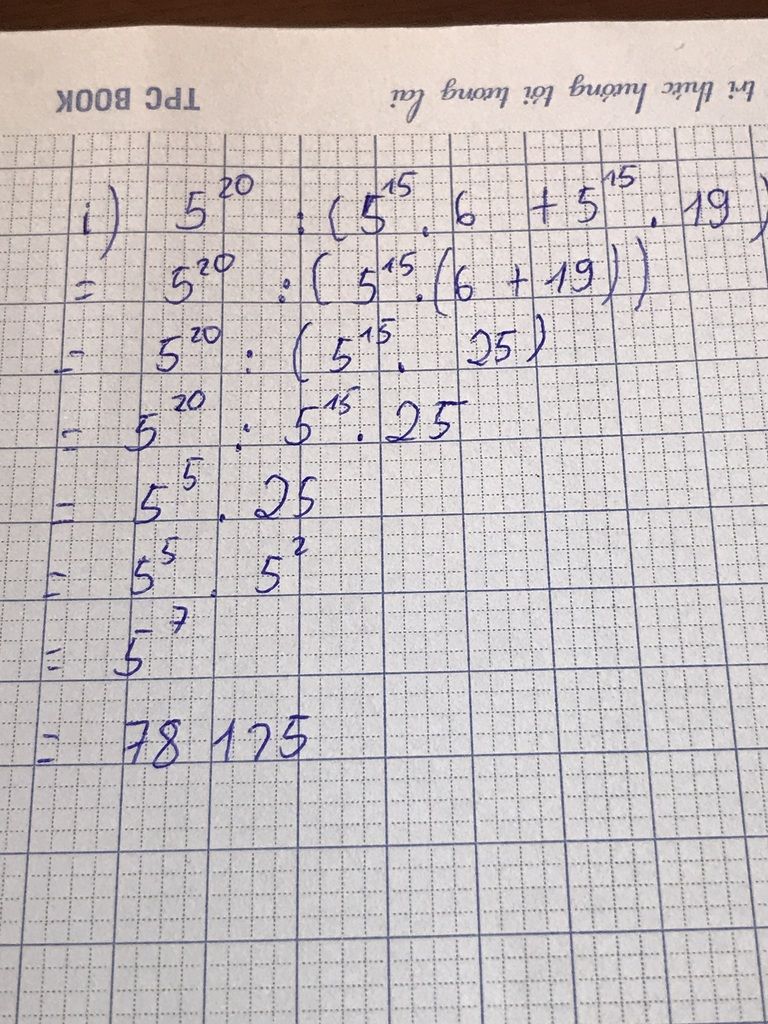 tri thức hướng tới tương lai
TPC BOOK
i) 5²⁰ : (5¹⁵ . 6 + 5¹⁵ . 19)
= 5²⁰ : (5¹⁵ . (6 + 19))
= 5²⁰ : (5¹⁵ . 25)
= 5²⁰ : 5¹⁵ . 25
= 5⁵ . 25
= 5⁵ . 5²
= 5⁷
= 78 125